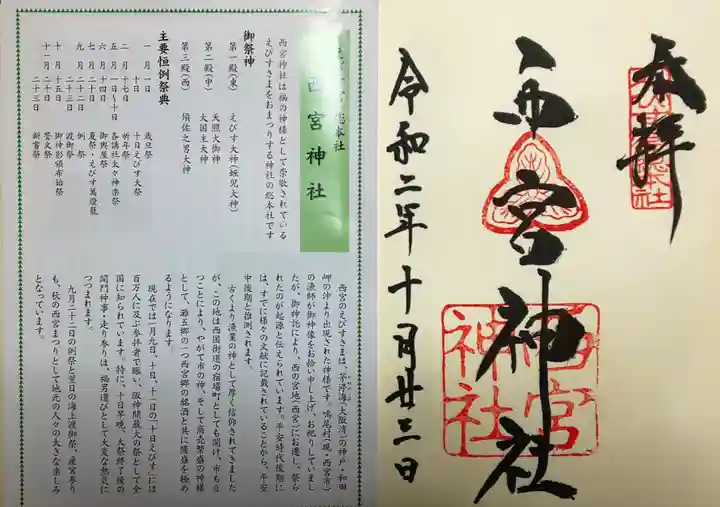 奉拝
西宮神社
西宮神社
令和二年十月廿三日
えびす宮総本社
西宮神社
西宮神社は福の神様として崇敬されている
えびすさまをおまつりする神社の総本社です
御祭神
第一殿(東) えびす大神(蛭児大神)
第二殿(中) 天照大御神
大国主大神
第三殿(西) 須佐之男大神
主要恒例祭典
一月 一日 歳旦祭
十日 十日えびす大祭
二月 十七日 祈年祭
五月 一日〜十日 各講社太々神楽祭
六月 十四日 御輿屋祭
七月 二十日 夏祭・えびす萬燈籠
九月 二十二日 例祭
二十三日 渡御祭
十月 十五日 御神影頒布始祭
十一月 二十日 誓文祭
二十三日 新嘗祭
西宮のえびすさまは、茅渟海(大阪湾)の神戸・和田
岬の沖より出現された神様です。鳴尾村(現・西宮市)
の漁師が御神像をお拾い申し上げ、お祀りしていまし
たが、御神託により、西の宮地(西宮)にお遷し、祭ら
れたのが起源と伝えられています。平安時代後期に
は、すでに様々の文献に記載されていることから、平安
中後期と推測されます。
古くより漁業の神として厚く信仰されてきました
が、この地は西国街道の宿場町としても開け、市も立
つことにより、やがて市の神、そして商売繁盛の神様
として、灘五郷の一つ西宮郷の銘酒と共に隆盛を極め
るようになります。
現在では一月九日、十日、十一日の「十日えびす」には
百万人に及ぶ参拝者で賑い、阪神間最大の祭として全
国に知られています。特に、十日早暁、大祭終了後の
開門神事・走り参りは、福男選びとして大変な熱気に
つつまれます。
九月二十二日の例祭と翌日の海上渡御祭、産宮参り
も、秋の西宮まつりとして地元の人々の大きな楽しみ
となっています。